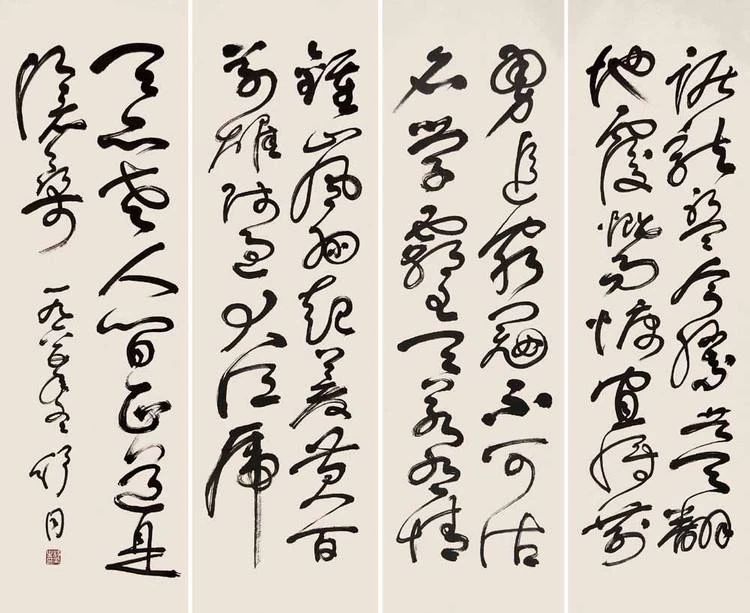 踞龍盤今勝昔天翻
地覆慨而慷宜将剩
勇追窮寇不可沽
名学霸王天若有情
鍾山風雨起蒼黄百
萬雄师过大江虎
天亦老人间正道是
滄桑
舒同